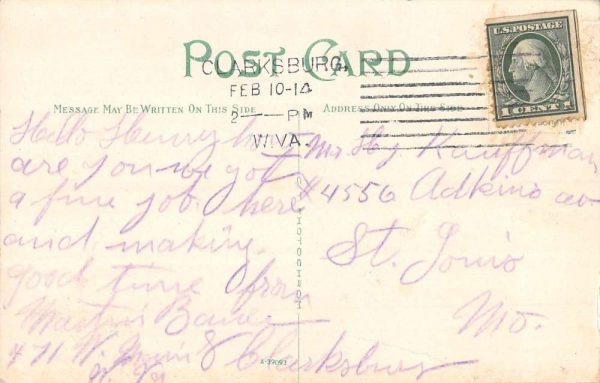 POST CARD
CLARKSBURG,
FEB 10-14
2 — PM
W.VA.
U.S. POSTAGE
1 CENT 1
MESSAGE MAY BE WRITTEN ON THIS SIDE
ADDRESS ONLY ON THIS SIDE
Hello Henry how
are you we got
a fine job here
and making
good time from
Bauer
471 W. Main St Clarksburg
W. Va
Mr Hy Kauffman
#4556 Adkins av
St. Louis
Mo.
A-39093